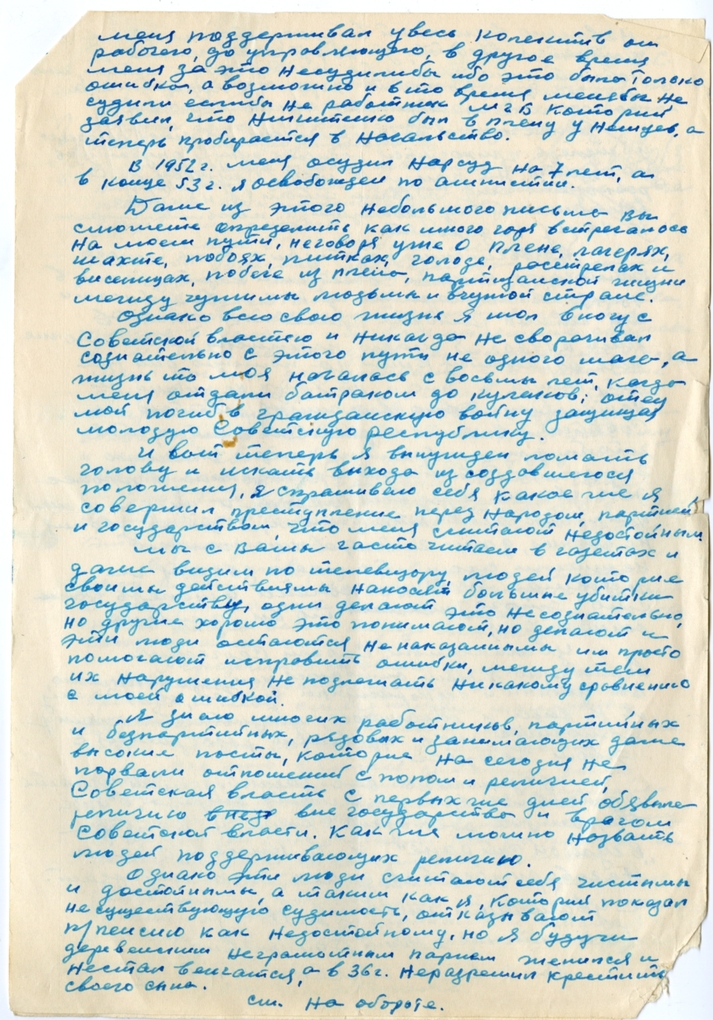 меня поддерживал увесь колектив от
рабочего, до управляющего, в другое время
меня за это несудилибы ибо это была только
ошибка, а возможно и в то время меня бы не
судили еслибы не работник М Г Б который
заявил, что Никитенко был в плену у Немцев, а
теперь пробирается в Начальство.
В 1952 г. меня осудил Нарсуд на 7 лет, а
в конце 53 г. я освобожден по амнистии.
Даже из этого небольшого письма Вы
сможете определить как много горя встречалось
на моем пути, неговоря уже о плене, лагерях,
шахте, побоях, пытках, голоде, расстрелах и
висетицах, побеге из плена, партизанской жизни
между чужимы людьми и вчужой стране.
Однако всю свою жизнь я шол вногу с
Советской властею и никогда не сворачивал
сознательно с этого пути не одного шага, а
жизнь то моя началась с восьмы лет, когда
меня отдали батраком до кулаков; отец
мой погиб в гражданскую войну защищая
молодую Советскую республику.
И вот теперь я вынужден ломать
голову и искать выхода из создавшегося
положения, я спрашиваю себя какое же я
совершил преступление перед Народом, партией
и государством, что меня считают недостойным
Мы с Вамы часто читаем в газетах и
даже видим по телевизору, людей которые
своимы действиямы наносят большие убитки
государству, одни делают это несознательно,
но другие хорошо это понимают, но делают и
эти люди остаются ненаказанимы, им просто
помогают исправить ошибки, между тем
их нарушения не подлежать никакому сровнению
с моей ошибкой.
Я знаю многих работников, партийных
и безпартийных, рядовых и занимающих даже
высокие посты, которые на сегодня не
порвали отношений с попом и религией,
Советская власть с первых же дней обявила
религию вне государства и врагом
Советской власти. Как же можно назвать
людей поддерживающих религию.
Однако эти люди считают себя чистымы
и достойнымы, а таким как я, который показал
несуществующую судимость, отказывают
п/пенсию как недостойному, но я будучи
деревенским неграмотным парнем женился и
нестал венчатся, а в 36 г. неразрешил крестить
своего сына.
см. на обороте.